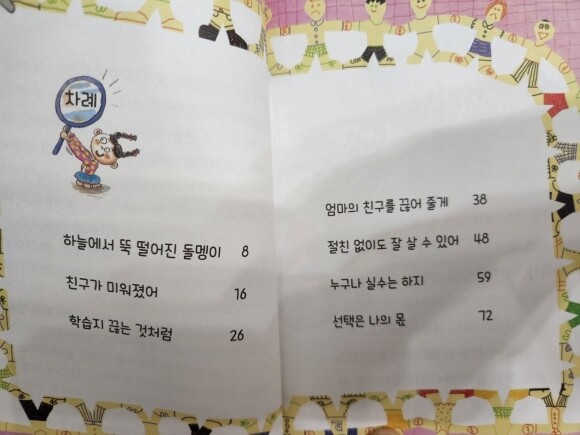 차례
하늘에서 뚝 떨어진 돌멩이 8
친구가 미워졌어 16
학습지 끊는 것처럼 26
엄마의 친구를 끊어 줄게 38
절친 없이도 잘 살 수 있어 48
누구나 실수는 하지 59
선택은 나의 몫 72